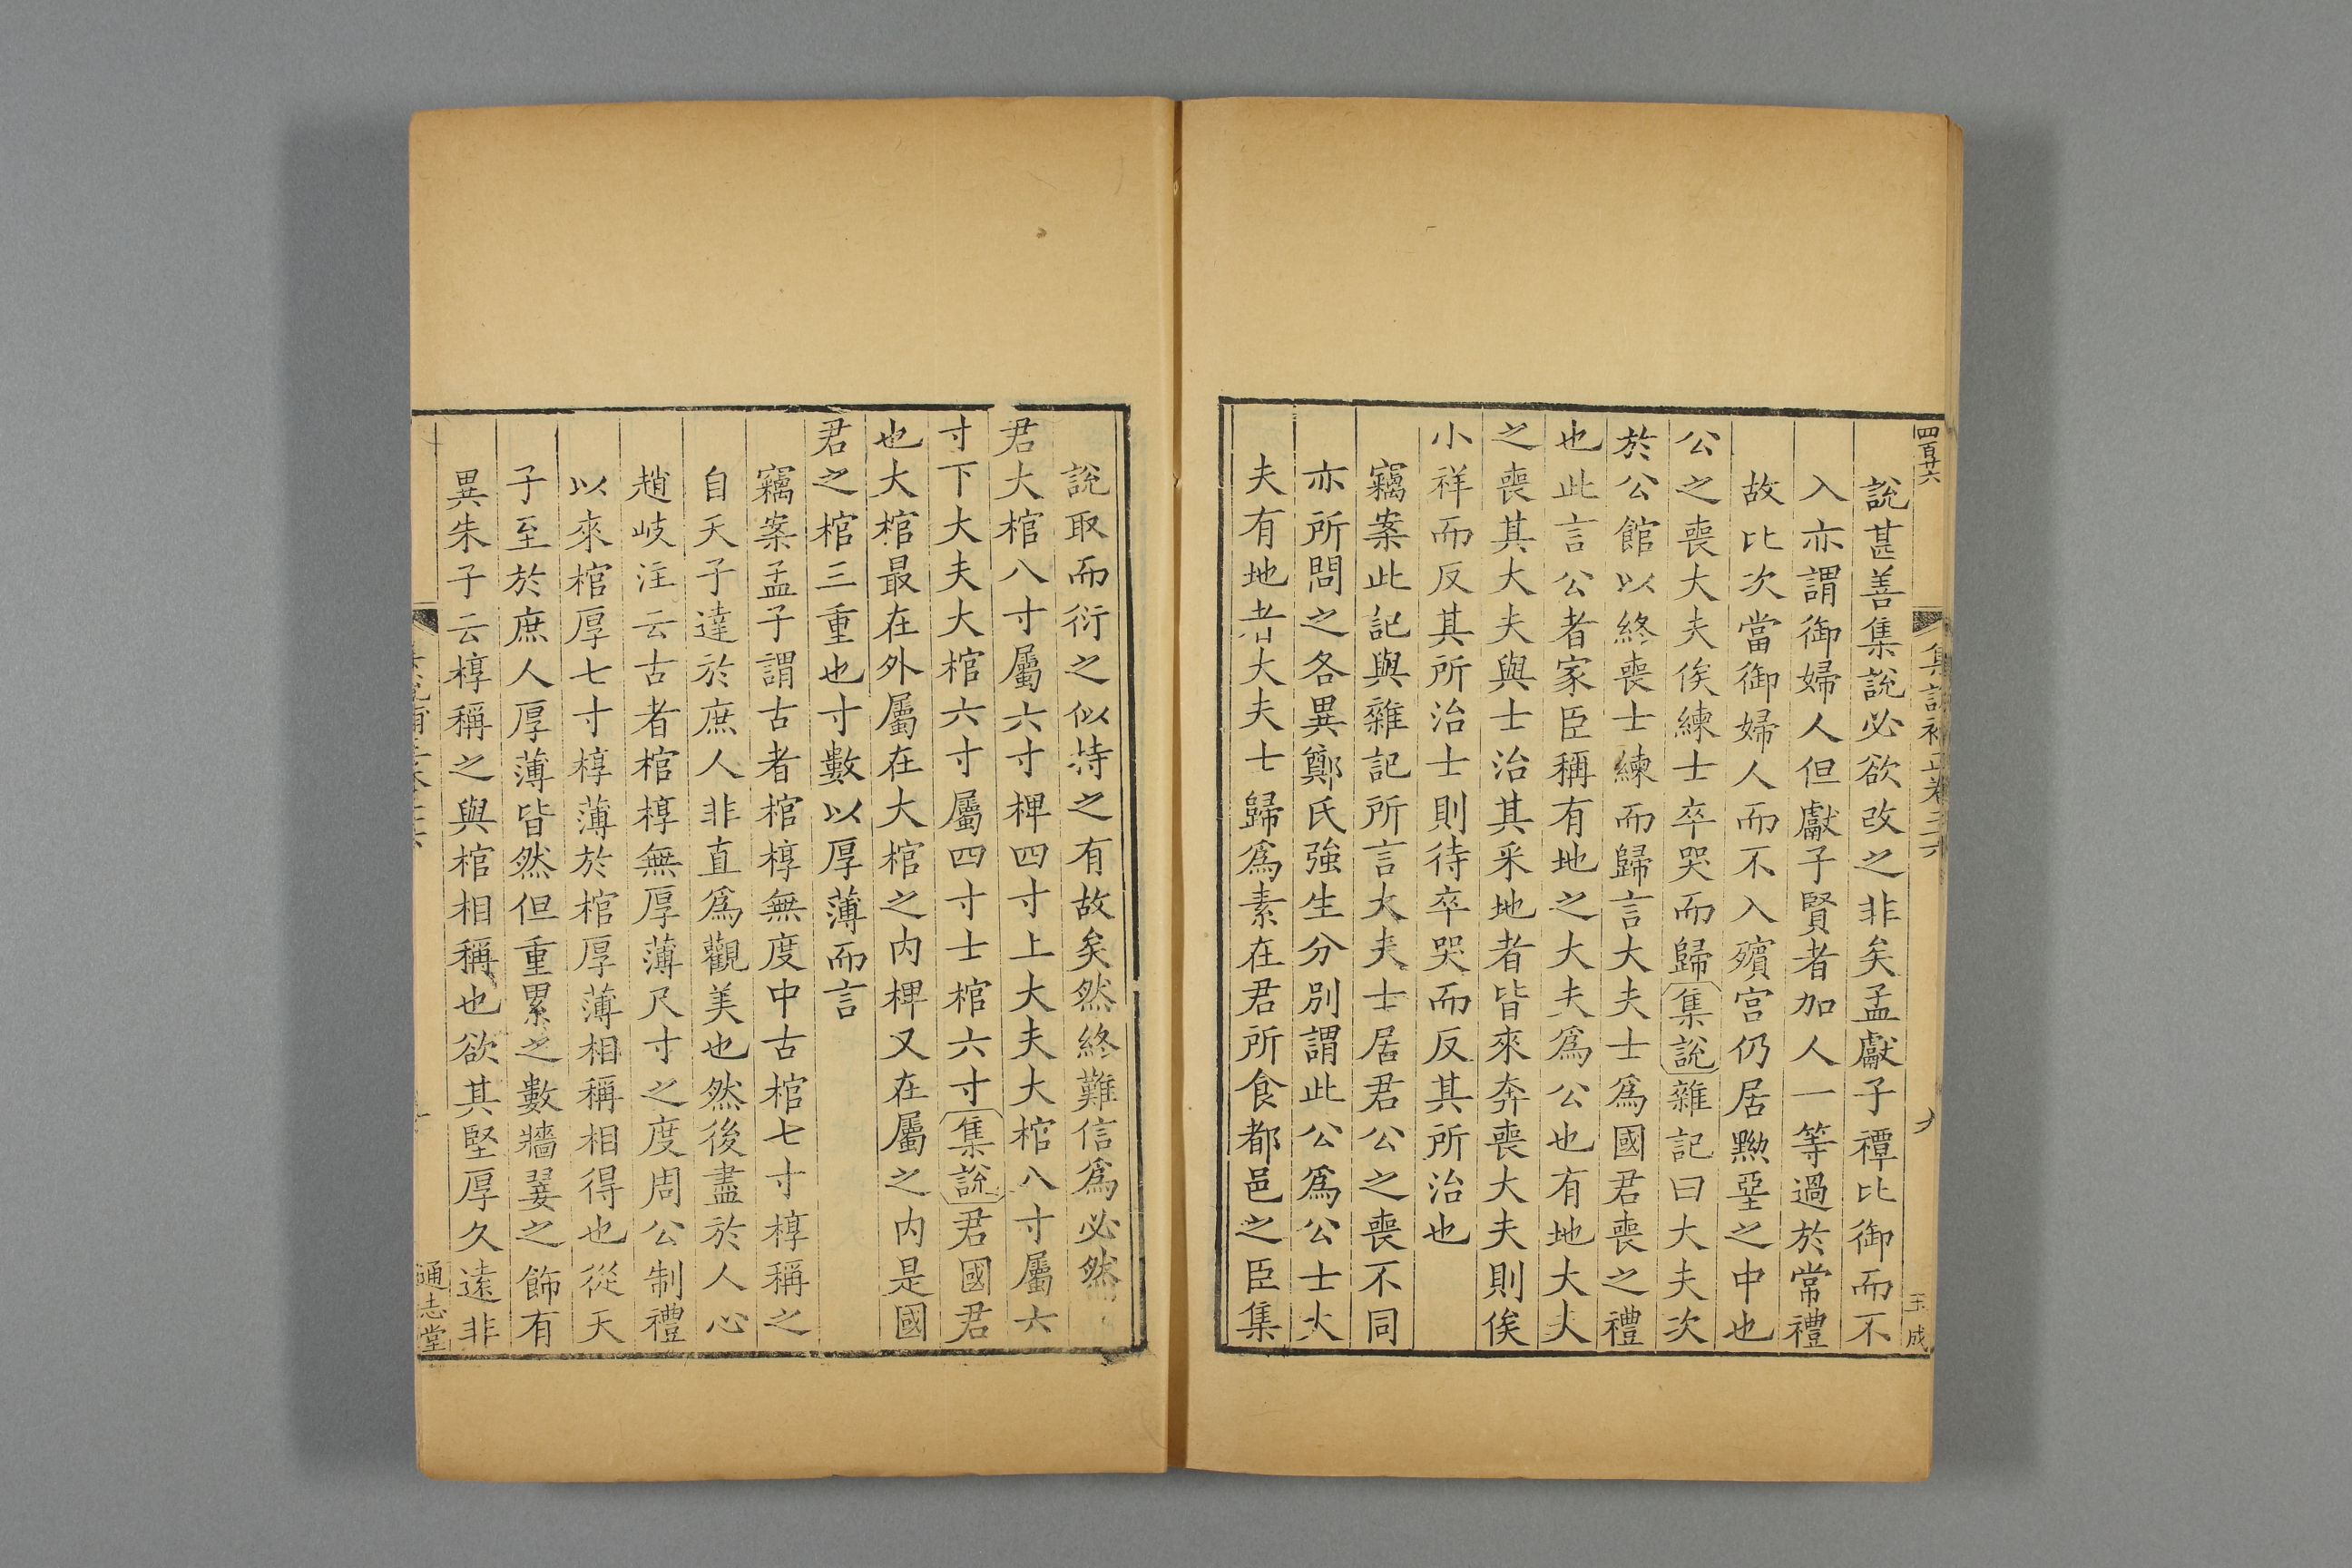 四百廿六
集說補正卷三六
九
玉成
說甚善集說必欲改之非矣孟獻子禫比御而不
入亦謂御婦人但獻子賢者加人一等過於常禮
故比次當御婦人而不入殯宮仍居黝堊之中也
公之喪大夫俟練士卒哭而歸集說雜記曰大夫次
於公館以終喪士練而歸言大夫士爲國君喪之禮
也此言公者家臣稱有地之大夫爲公也有地大夫
之喪其大夫與士治其采地者皆來奔喪大夫則俟
小祥而反其所治士則待卒哭而反其所治也
竊案此記與雜記所言大夫士居君公之喪不同
亦所問之各異鄭氏強生分別謂此公爲公士大
夫有地者大夫士歸爲素在君所食都邑之臣集
說取而衍之似持之有故矣然終難信爲必然
君大棺八寸屬六寸椑四寸上大夫大棺八寸屬六
寸下大夫大棺六寸屬四寸士棺六寸集說君國君
也大棺最在外屬在大棺之内椑又在屬之内是國
君之棺三重也寸數以厚薄而言
竊案孟子謂古者棺椁無度中古棺七寸椁稱之
自天子達於庶人非直爲觀美也然後盡於人心
趙岐注云古者棺椁無厚薄尺寸之度周公制禮
以來棺厚七寸椁薄於棺厚薄相稱相得也從天
子至於庶人厚薄皆然但重累之數牆翣之飾有
異朱子云椁稱之與棺相稱也欲其堅厚久遠非
通志堂